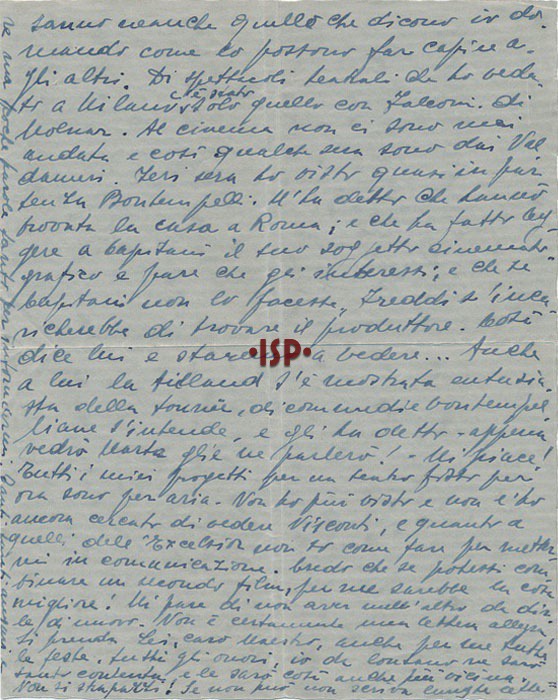 sanno neanche quello che dicono io do-
mando come lo possono far capire a-
gli altri. Di spettacoli teatrali da ho vedu-
to a Milano c'è stato solo quello con Falconi. di
Molnar. Al cinema non ci sono mai
andata e così qualche sera sono dai Val
dameri. Ieri sera ho visto quasi in par
tenza Bontempelli. M'ha detto che hanno
trovato la casa a Roma; e che ha fatto leg-
gere a Capitani il suo soggetto cinemato
grafico e pare che gli interessi; e che se
Capitani non lo facesse, Freddi s'inca
richerebbe di trovare il produttore. Così
dice lui e staremo a vedere... Anche
a lui la s'è mostrata entusia
sta della tournée, di commedie bontempel
liane s'intende, e gli ha detto - appena
vedrò Marta glie ne parlerò! - Mi piace!
Tutti i miei progetti per un teatro fisso per
ora sono per aria. Non ho più visto e non l'ho
ancora cercato di vedere Visconti, e quanto a
quelli dell'Excelsior non so come fare per metter
mi in comunicazione. Credo che se potessi com
binare un secondo film, per me sarebbe la cosa
migliore! Mi pare di non aver null'altro da dir
le di nuovo. Non è certamente una lettera allegra.
Si prenda Lei, caro Maestro, anche per me tutte
le feste, tutti gli onori, io da lontano ne sarò
tanto contenta, e lo sarò così anche più vicina.
Non si strapazzi! Se non può non scriva lunghe
poche parole tanto per informarmi. Tanti
·ISP·